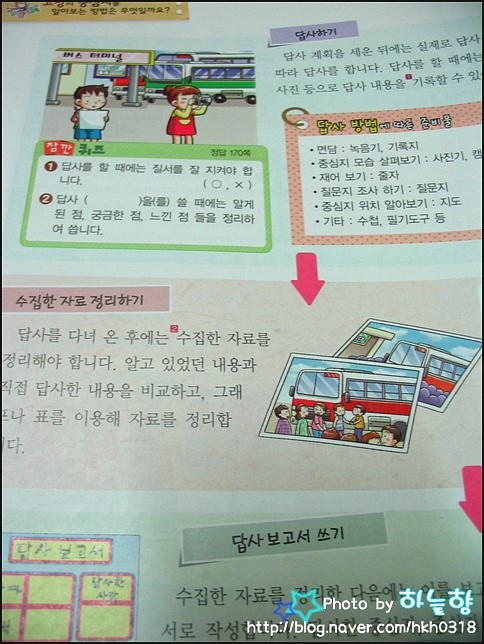 알아보는 방법은 무엇일까요?
답사하기
답사 계획을 세운 뒤에는 실제로 답사
따라 답사를 합니다. 답사를 할 때에는
사진 등으로 답사 내용을 기록할 수 있
버스 터미널
잠깐 퀴즈
정답 170쪽
1 답사를 할 때에는 질서를 잘 지켜야 합
니다. (○, ×)
2 답사 ( )을(를) 쓸 때에는 알게
된 점, 궁금한 점, 느낀 점 들을 정리하
여 씁니다.
답사 방법에 따른 준비물
• 면담 : 녹음기, 기록지
• 중심지 모습 살펴보기 : 사진기, 캠
• 재어 보기 : 줄자
• 질문지 조사 하기 : 질문지
• 중심지 위치 알아보기 : 지도
• 기타 : 수첩, 필기도구 등
수집한 자료 정리하기
답사를 다녀 온 후에는 2 수집한 자료를
정리해야 합니다. 알고 있었던 내용과
직접 답사한 내용을 비교하고, 그래
프나 표를 이용해 자료를 정리합
니다.
답사 보고서
답사한
사람
답사 보고서 쓰기
수집한 자료를 정리한 다음에는 이를 보고
서로 작성합
Photo by 하늘향
http://blog.naver.com/hkh0318